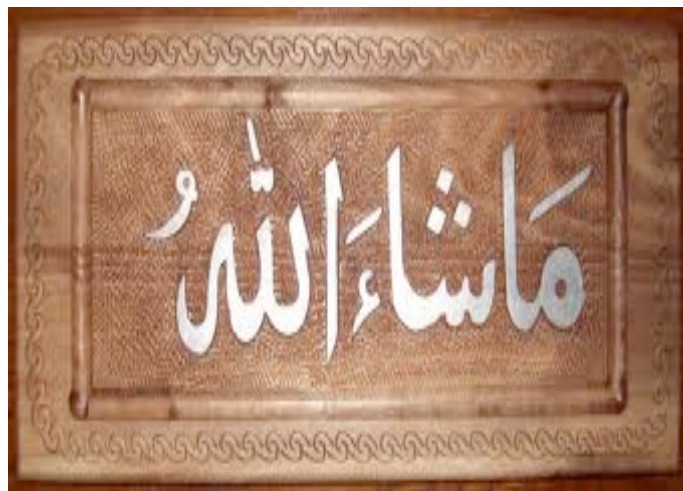 مَاشَاءَ اللّٰهُ